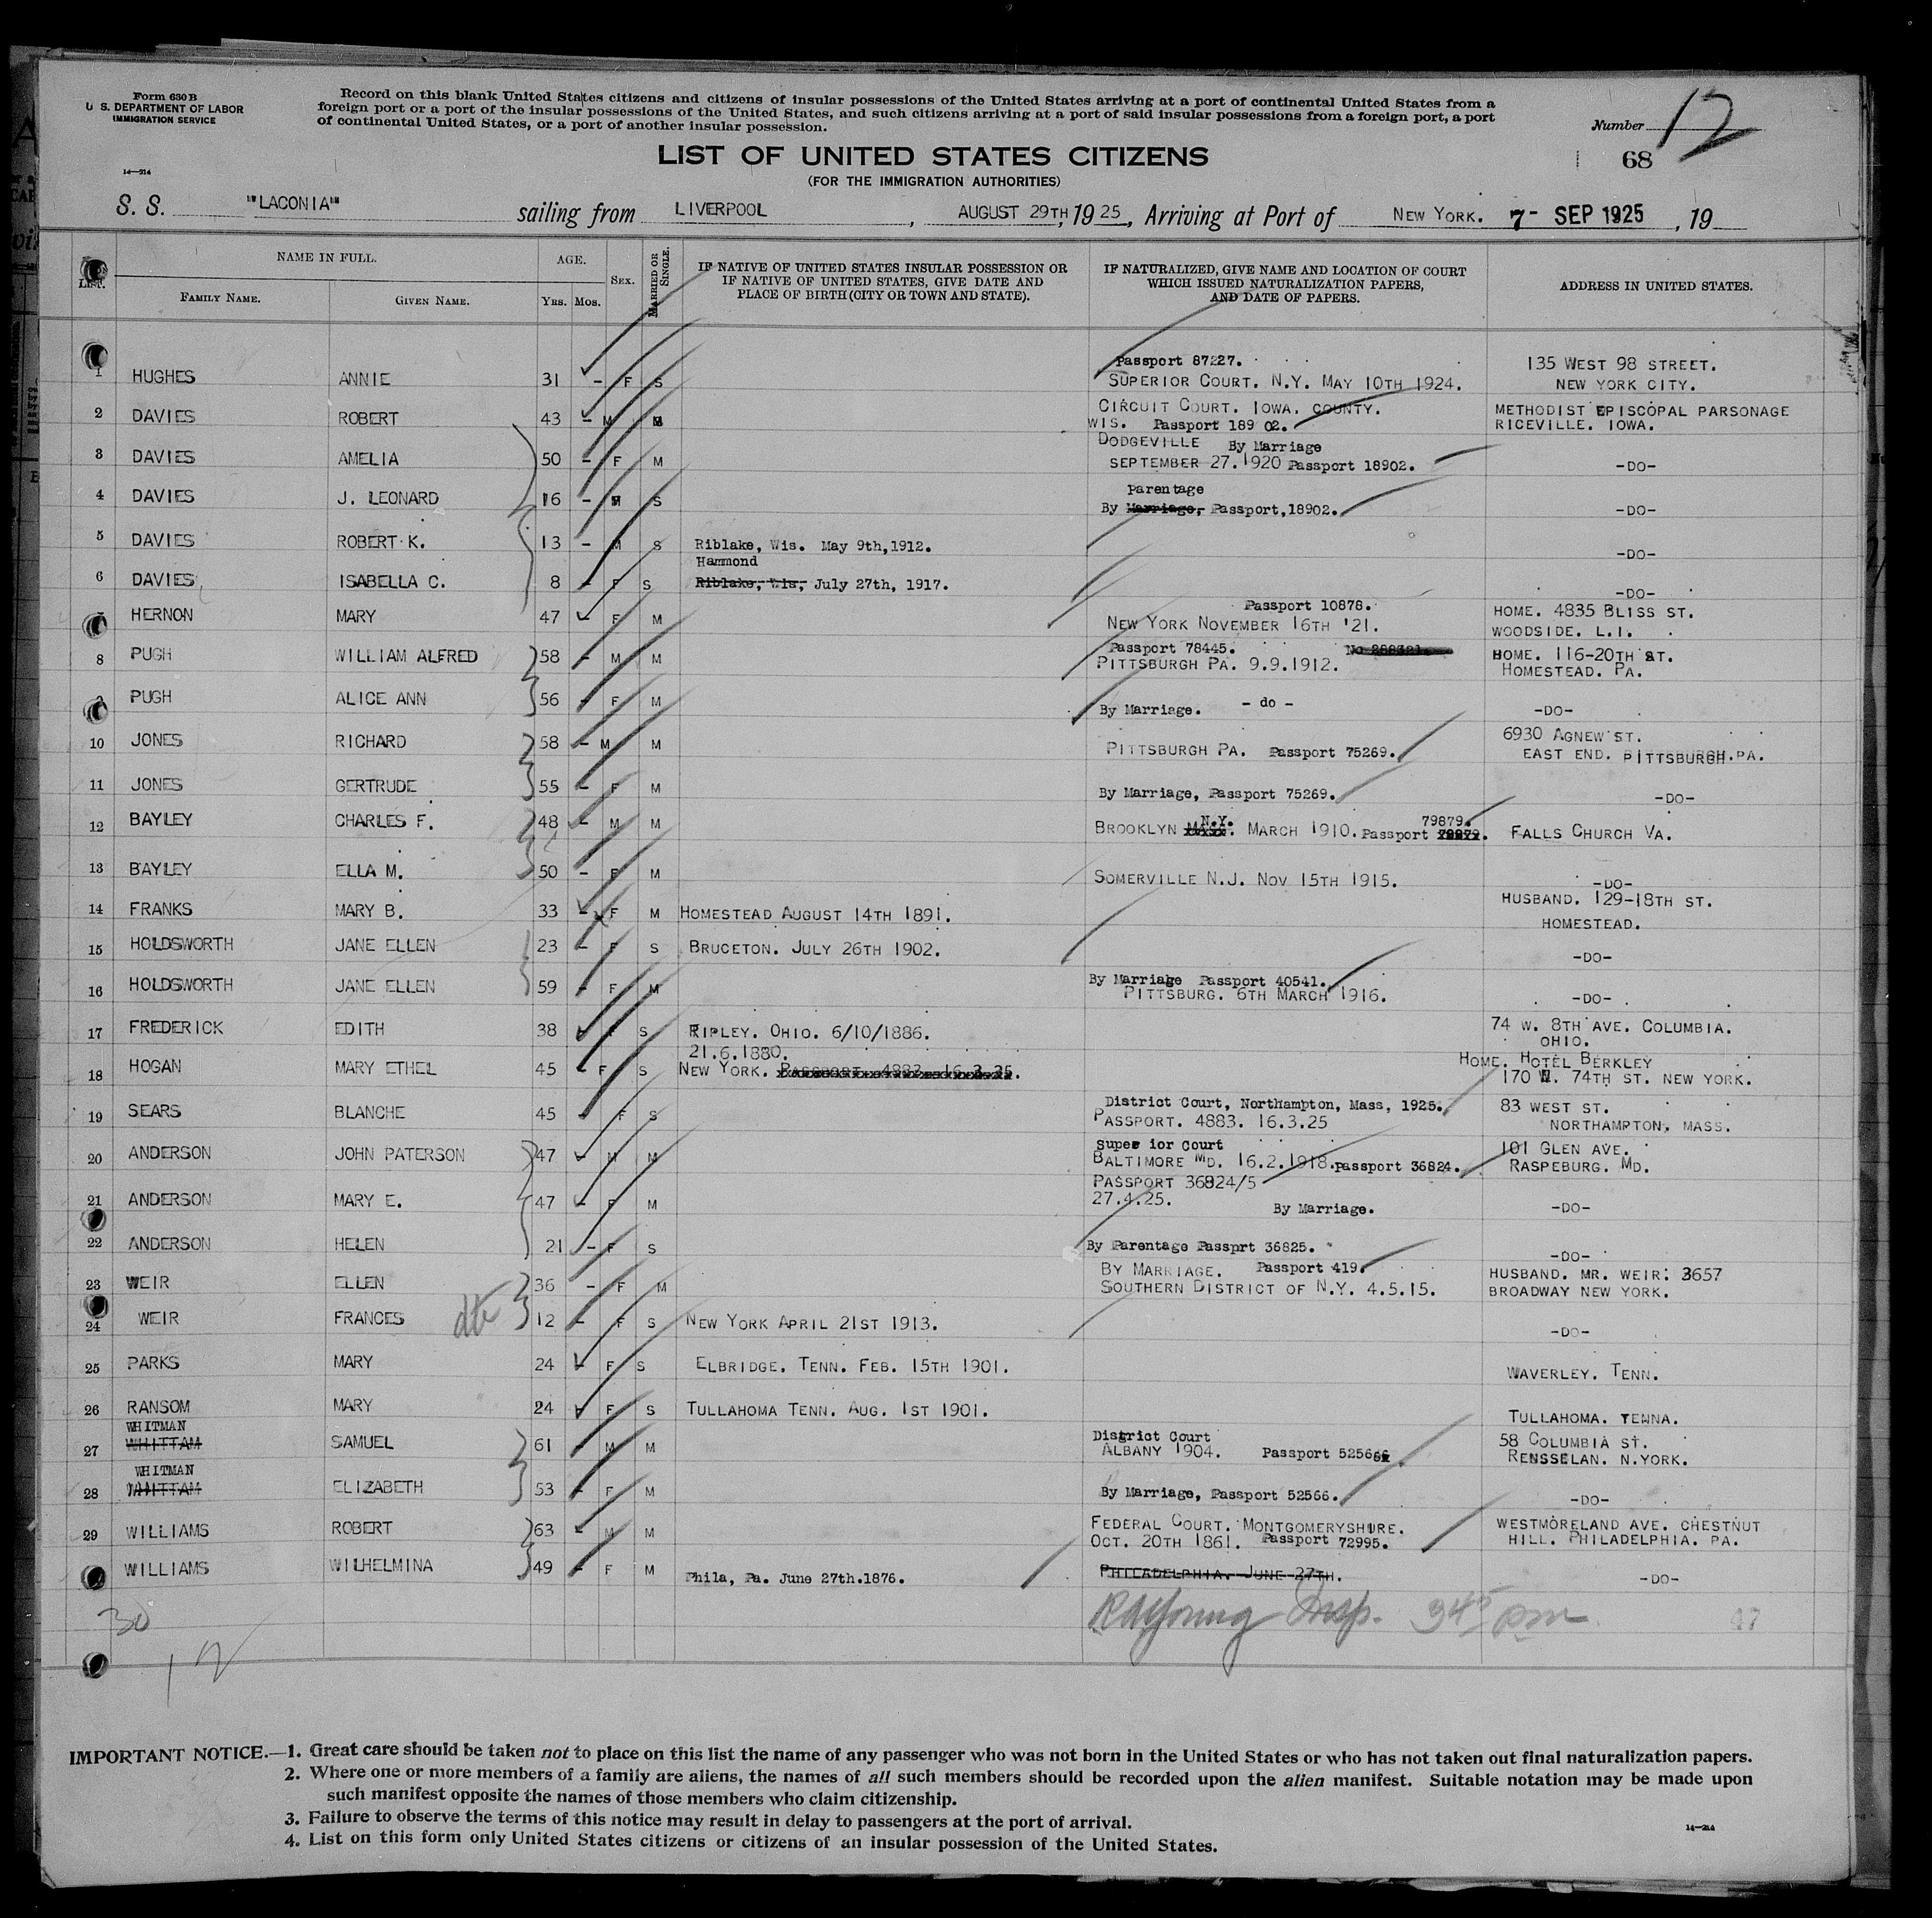 Form 630 B
U. S. DEPARTMENT OF LABOR
IMMIGRATION SERVICE
14—214
Record on this blank United States citizens and citizens of insular possessions of the United States arriving at a port of continental United States from a
foreign port or a port of the insular possessions of the United States, and such citizens arriving at a port of said insular possessions from a foreign port, a port
of continental United States, or a port of another insular possession.
Number 12
68
LIST OF UNITED STATES CITIZENS
(FOR THE IMMIGRATION AUTHORITIES)
S. S. "LACONIA" sailing from LIVERPOOL, AUGUST 29TH, 1925, Arriving at Port of NEW YORK. 7- SEP 1925, 19
LIST. NAME IN FULL. AGE. SEX. MARRIED OR SINGLE.
FAMILY NAME. GIVEN NAME. YRS. MOS.
IF NATIVE OF UNITED STATES INSULAR POSSESSION OR
IF NATIVE OF UNITED STATES, GIVE DATE AND
PLACE OF BIRTH (CITY OR TOWN AND STATE).
IF NATURALIZED, GIVE NAME AND LOCATION OF COURT
WHICH ISSUED NATURALIZATION PAPERS,
AND DATE OF PAPERS.
ADDRESS IN UNITED STATES.
Passport 87227. 135 WEST 98 STREET.
1 HUGHES ANNIE 31 - F S SUPERIOR COURT. N.Y. MAY 10TH 1924. NEW YORK CITY.
CIRCUIT COURT. IOWA. COUNTY. METHODIST EPISCOPAL PARSONAGE
2 DAVIES ROBERT 43 - M M WIS. Passport 189 02. RICEVILLE. IOWA.
DODGEVILLE By Marriage
3 DAVIES AMELIA 50 - F M SEPTEMBER 27. 1920 Passport 18902. -DO-
Parentage
4 DAVIES J. LEONARD 16 - M S By Marriage, Passport,18902. -DO-
5 DAVIES ROBERT K. 13 - M S Riblake, Wis. May 9th,1912. -DO-
Hammond
6 DAVIES ISABELLA C. 8 - F S Riblake, Wis, July 27th, 1917. -DO-
Passport 10878. HOME. 4835 BLISS ST.
7 HERNON MARY 47 - F M NEW YORK NOVEMBER 16TH '21. WOODSIDE. L.I.
Passport 78445. No HOME. 116-20TH ST.
8 PUGH WILLIAM ALFRED 58 - M M PITTSBURGH PA. 9.9.1912. HOMESTEAD. PA.
9 PUGH ALICE ANN 56 - F M By Marriage. - do - -DO-
6930 AGNEW ST.
10 JONES RICHARD 58 - M M PITTSBURGH PA. Passport 75269. EAST END. PITTSBURGH.PA.
11 JONES GERTRUDE 55 - F M By Marriage, Passport 75269. -DO-
N.Y. 79879.
12 BAYLEY CHARLES F. 48 - M M BROOKLYN MASS. MARCH 1910. Passport FALLS CHURCH VA.
13 BAYLEY ELLA M. 50 - F M SOMERVILLE N.J. NOV 15TH 1915. -DO-
HUSBAND. 129-18TH ST.
14 FRANKS MARY B. 33 - F M HOMESTEAD AUGUST 14TH 1891. HOMESTEAD.
15 HOLDSWORTH JANE ELLEN 23 - F S BRUCETON. JULY 26TH 1902. -DO-
By Marriage Passport 40541.
16 HOLDSWORTH JANE ELLEN 59 - F M PITTSBURG. 6TH MARCH 1916. -DO-
74 W. 8TH AVE. COLUMBIA.
17 FREDERICK EDITH 38 - F S RIPLEY. OHIO. 6/10/1886. OHIO.
21.6.1880. HOME. HOTEL BERKLEY
18 HOGAN MARY ETHEL 45 - F S NEW YORK. PASSPORT. 4883. 16.3.25. 170 W. 74TH ST. NEW YORK.
District Court, Northampton, Mass, 1925. 83 WEST ST.
19 SEARS BLANCHE 45 - F S PASSPORT. 4883. 16.3.25 NORTHAMPTON. MASS.
Supe ior Court 101 GLEN AVE.
20 ANDERSON JOHN PATERSON 47 - M M BALTIMORE MD. 16.2.1918. Passport 36824. RASPEBURG. MD.
PASSPORT 36824/5
21 ANDERSON MARY E. 47 - F M 27.4.25. By Marriage. -DO-
22 ANDERSON HELEN 21 - F S By Parentage Passprt 36825. -DO-
BY MARRIAGE. Passport 419. HUSBAND. MR. WEIR. 3657
23 WEIR ELLEN 36 - F M SOUTHERN DISTRICT OF N.Y. 4.5.15. BROADWAY NEW YORK.
24 WEIR FRANCES 12 - F S NEW YORK APRIL 21ST 1913. -DO-
25 PARKS MARY 24 - F S ELBRIDGE. TENN. FEB. 15TH 1901. WAVERLEY. TENN.
26 RANSOM MARY 24 - F S TULLAHOMA TENN. AUG. 1ST 1901. TULLAHOMA. TENNA.
WHITMAN District Court 58 COLUMBIA ST.
27 WHITTAM SAMUEL 61 - M M ALBANY 1904. Passport 52566 RENSSELAN. N.YORK.
WHITMAN
28 WHITTAM ELIZABETH 53 - F M By Marriage, Passport 52566. -DO-
FEDERAL COURT. MONTGOMERYSHIRE. WESTMORELAND AVE. CHESTNUT
29 WILLIAMS ROBERT 63 - M M OCT. 20TH 1861. Passport 72995. HILL. PHILADELPHIA. PA.
WILLIAMS WILHELMINA 49 - F M Phila, Pa. June 27th.1876. PHILADELPHIA. JUNE 27TH. -DO-
30 Insp. 3 45 pm 47
12
IMPORTANT NOTICE.—1. Great care should be taken not to place on this list the name of any passenger who was not born in the United States or who has not taken out final naturalization papers.
2. Where one or more members of a family are aliens, the names of all such members should be recorded upon the alien manifest. Suitable notation may be made upon
such manifest opposite the names of those members who claim citizenship.
3. Failure to observe the terms of this notice may result in delay to passengers at the port of arrival.
4. List on this form only United States citizens or citizens of an insular possession of the United States.
14—214